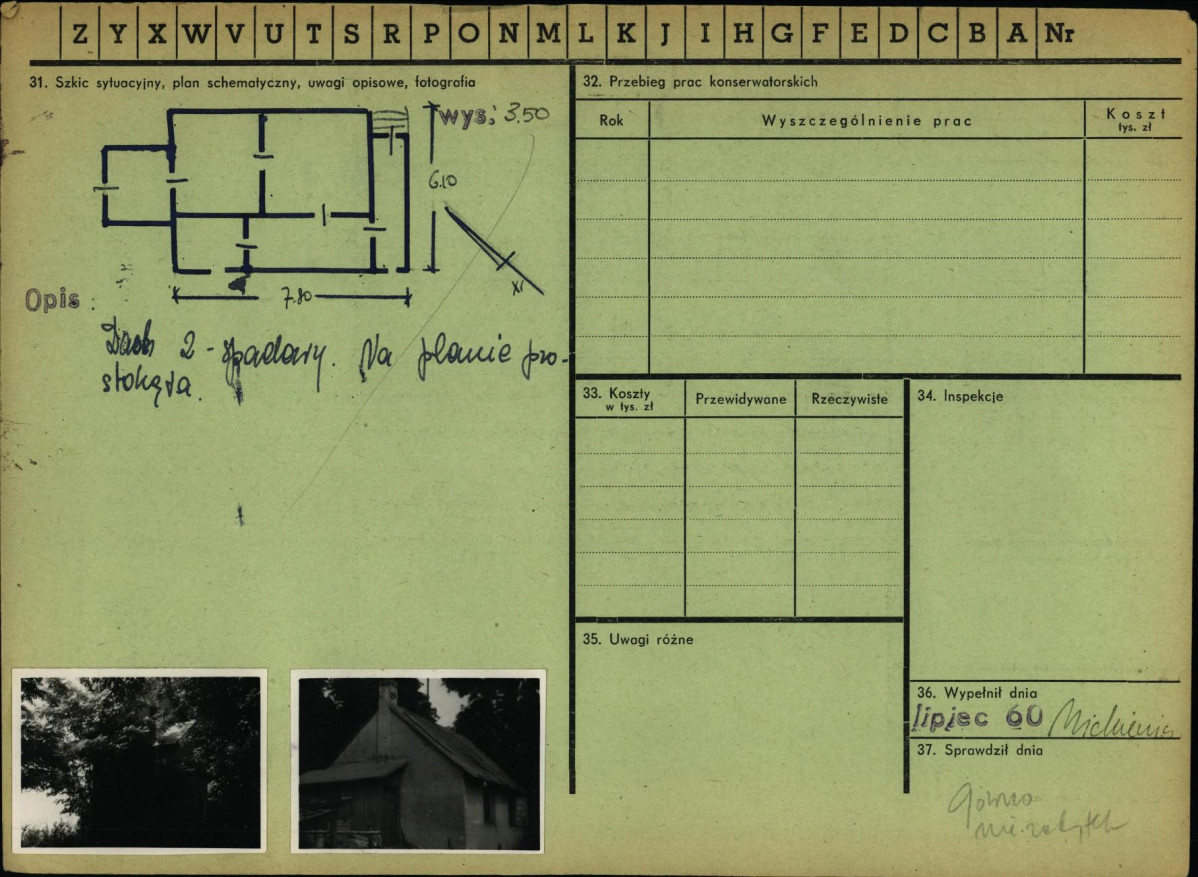 Z Y X W V U T S R P O N M L K J I H G F E D C B A Nr
31. Szkic sytuacyjny, plan schematyczny, uwagi opisowe, fotografia
wys: 3.50
6.10
7.80
Opis :
Dach 2-spadowy. Na planie pro-
stokąta.
32. Przebieg prac konserwatorskich
Rok
Wyszczególnienie prac
Koszt
tys. zł
33. Koszty
w tys. zł
Przewidywane
Rzeczywiste
34. Inspekcje
35. Uwagi różne
36. Wypełnił dnia
lipiec 60
37. Sprawdził dnia